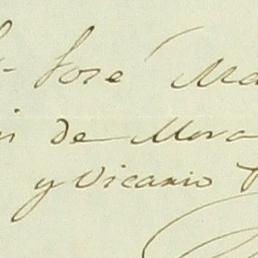 José Ma
de Mora
y Vicario